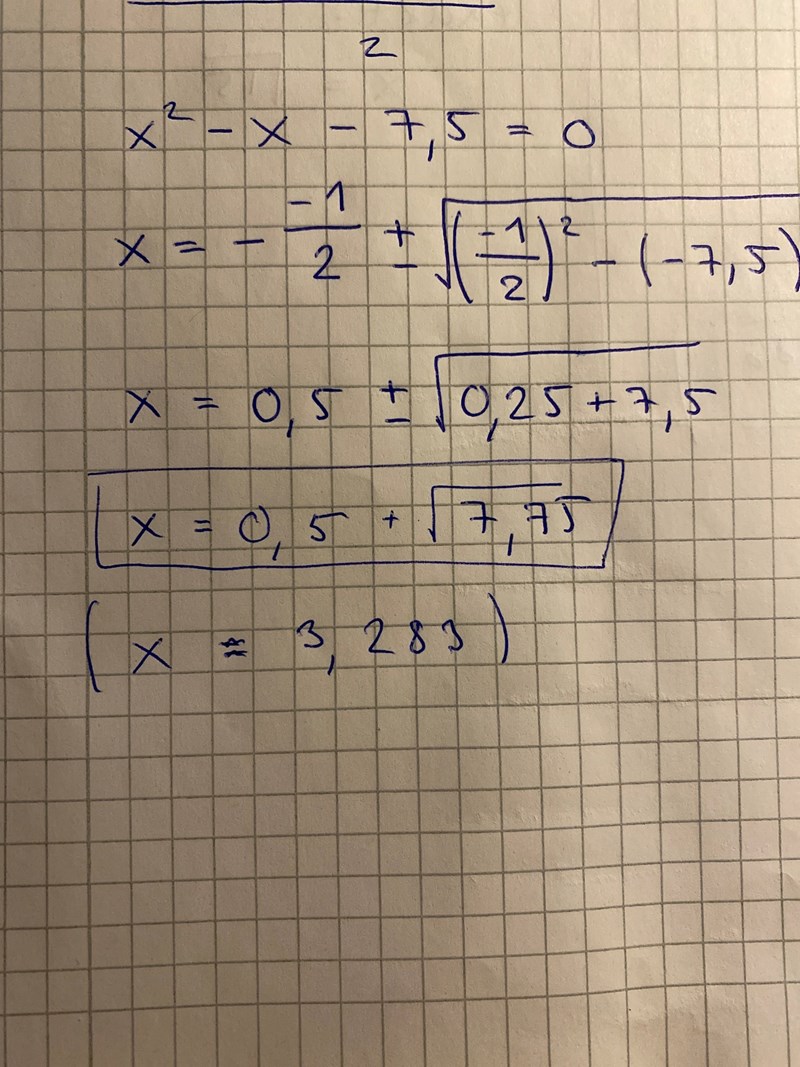 2
x² - x - 7,5 = 0
x = - -1/2 ± √((-1/2)² - (-7,5)
x = 0,5 ± √(0,25 + 7,5)
x = 0,5 + √(7,75)
(x ≈ 3,283)